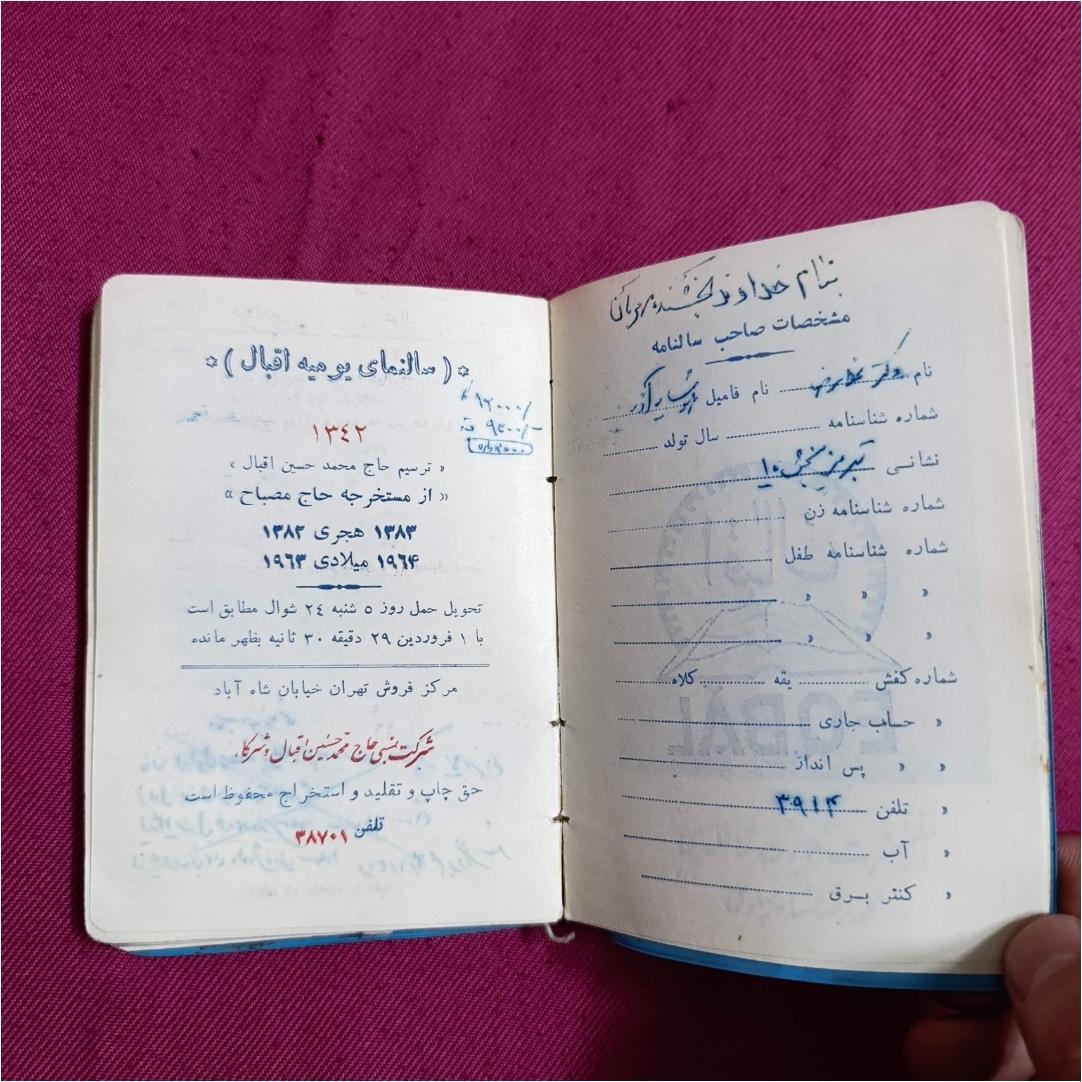 * ( سالنمای یومیه اقبال ) *
۱۲۰۰۰/
۹۲۰۰/-
۱۳۴۲
« ترسیم حاج محمد حسین اقبال »
«« از مستخرجه حاج مصباح »
۱۳۸۳ هجری ۱۳۸۲
۱۹۶۴ میلادی ۱۹۶۳
تحویل حمل روز ۵ شنبه ۲۴ شوال مطابق است
با ۱ فروردین ۲۹ دقیقه ۳۰ ثانیه بظهر مانده
مرکز فروش تهران خیابان شاه آباد
شرکت نسبی حاج محمد حسین اقبال و شرکاء
حق چاپ و تقلید و استخراج محفوظ است
تلفن ۳۸۷۰۱
بنام خداوند بخشنده مهربان
مشخصات صاحب سالنامه
نام دکتر غلامرضا نام فامیل
شماره شناسنامه سال تولد
نشانی تبریز بخش ۱۰
شماره شناسنامه زن
شماره شناسنامه طفل
« « « «
« « « «
شماره کفش یقه کلاه
« حساب جاری
« « پس انداز
« تلفن ۳۹۱۴
« آب
« کنتر برق